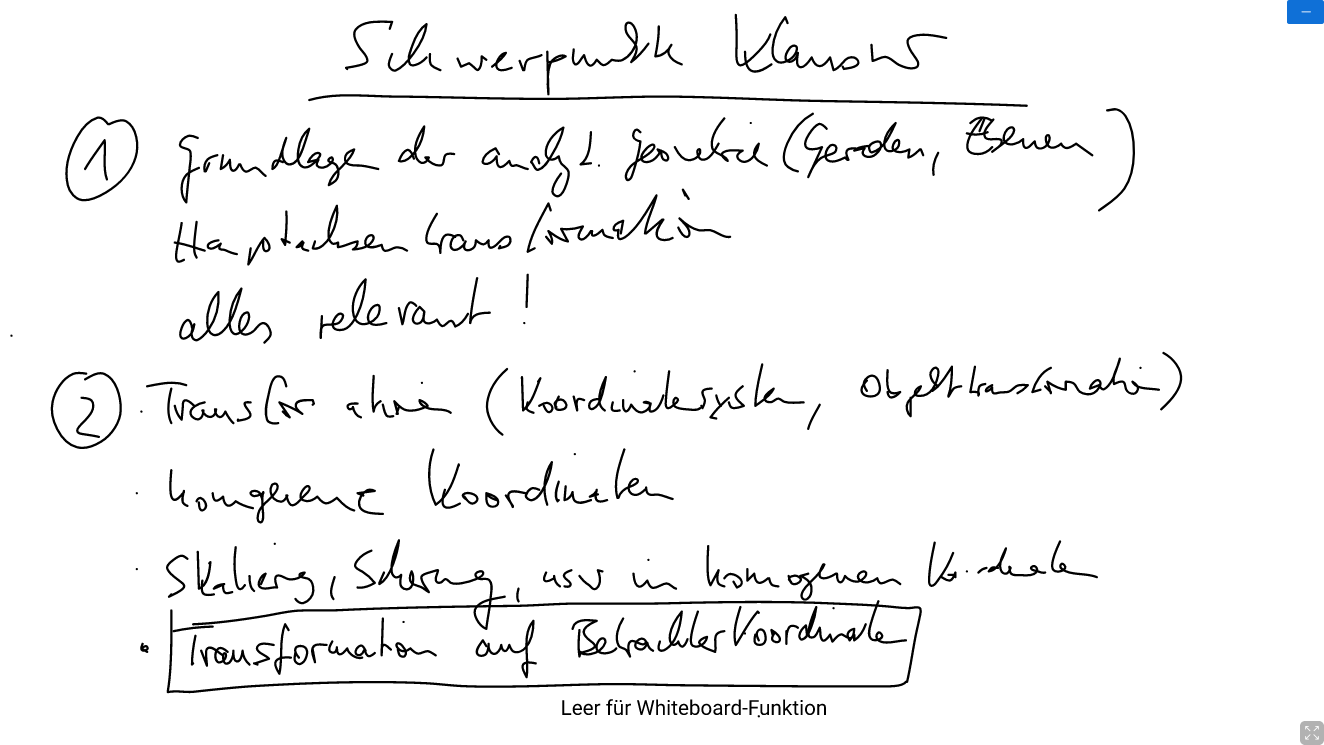 Schwerpunkte Klausur
① Grundlagen der analyt. Geometrie (Geraden, Ebenen)
Hauptachsentransformation
alles relevant!
② · Transformationen (Koordinatensystem, Objekttransformation)
· homogene Koordinaten
· Skalierung, Scherung, usw in homogenen Koordinaten
· Transformation auf Betrachterkoordinaten
Leer für Whiteboard-Funktion